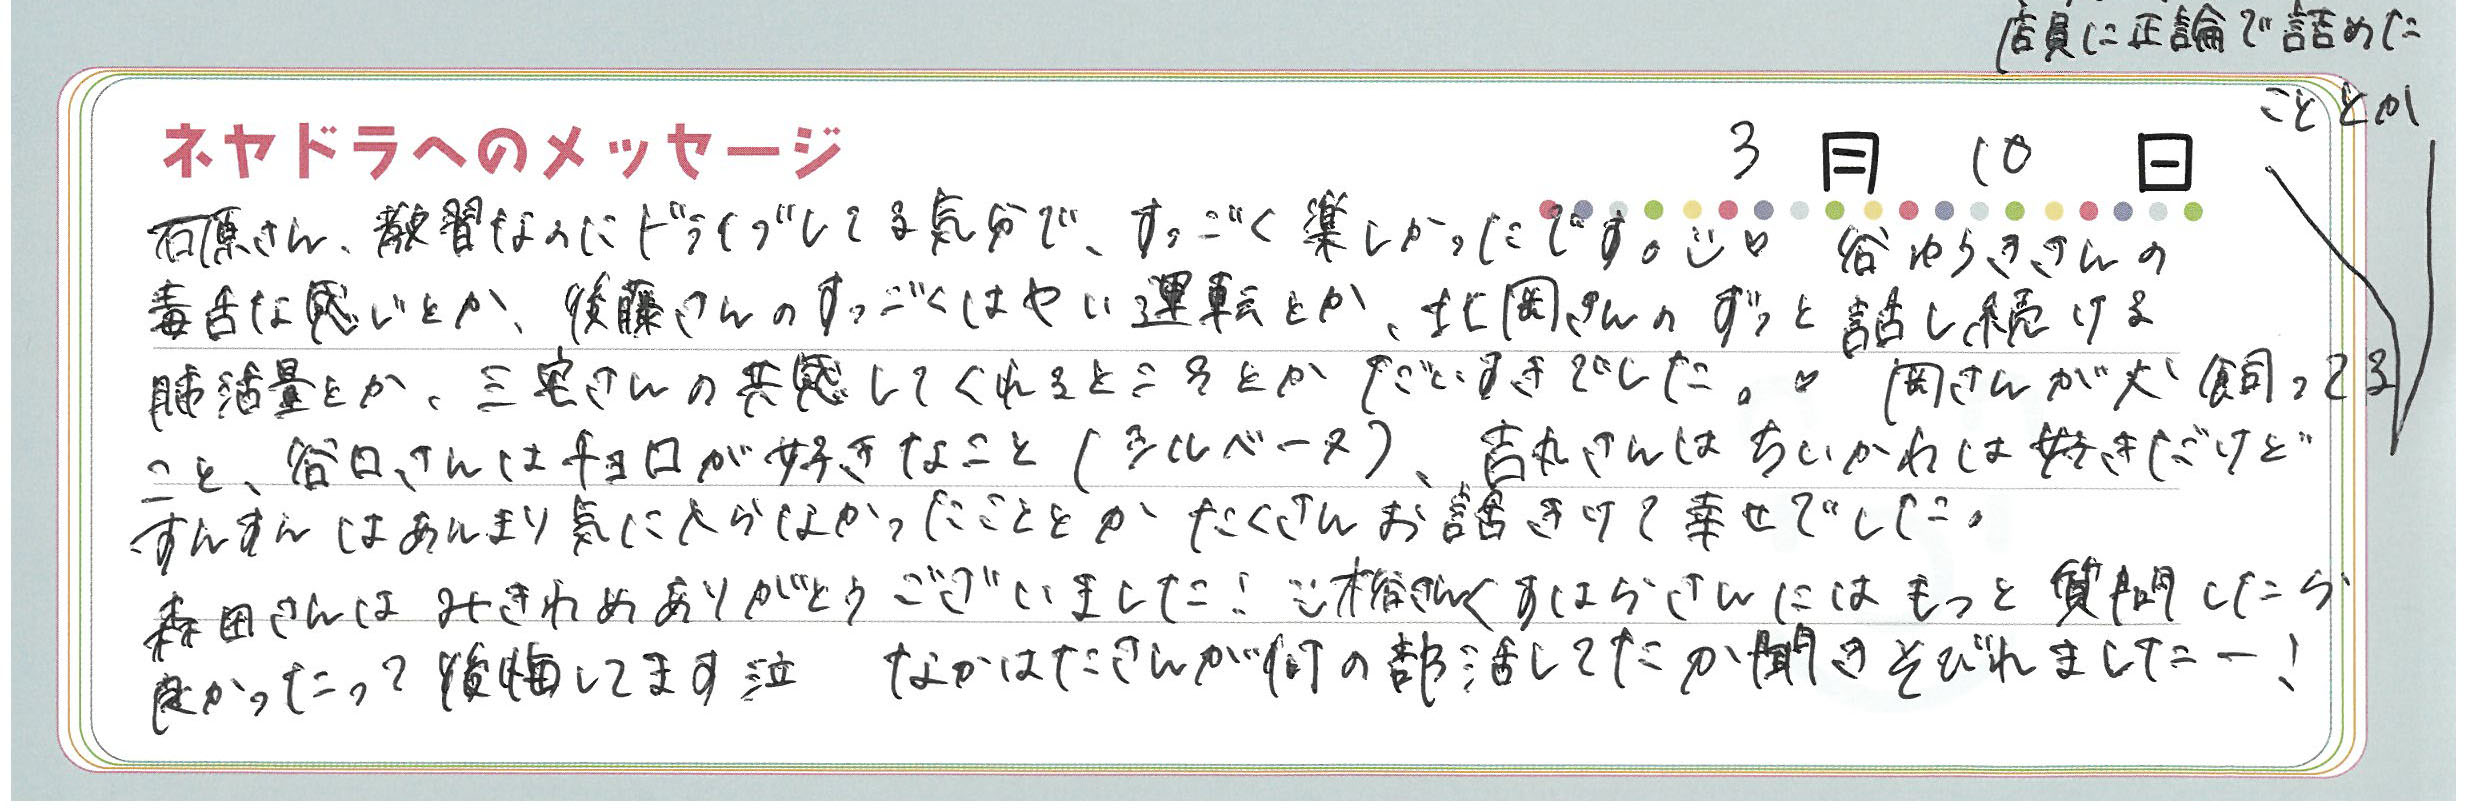 店員に正論で詰めた
こととか
ネヤドラへのメッセージ
3月10日
石原さん、教習なのにドライブしてる気分で、すっごく楽しかったです。♡ 谷ゆうきさんの
毒舌な感じとか、後藤さんのすっごくはやい運転とか、北岡さんのずっと話し続ける
肺活量とか、三宅さんの共感してくれるところとかだいすきでした。♡ 岡さんが犬飼ってる
こと、谷口さんはチョロが好きなこと(シルベーヌ)、吉丸さんはちいかわは好きだけど
すんすんはあんまり気に入らなかったこととかたくさんお話きけて幸せでした。
森田さんはみきわめありがとうございました! 木谷さんくすはらさんにはもっと質問したら
良かったって後悔してます泣 なかはたさんが何の部活してたか聞きそびれましたー!